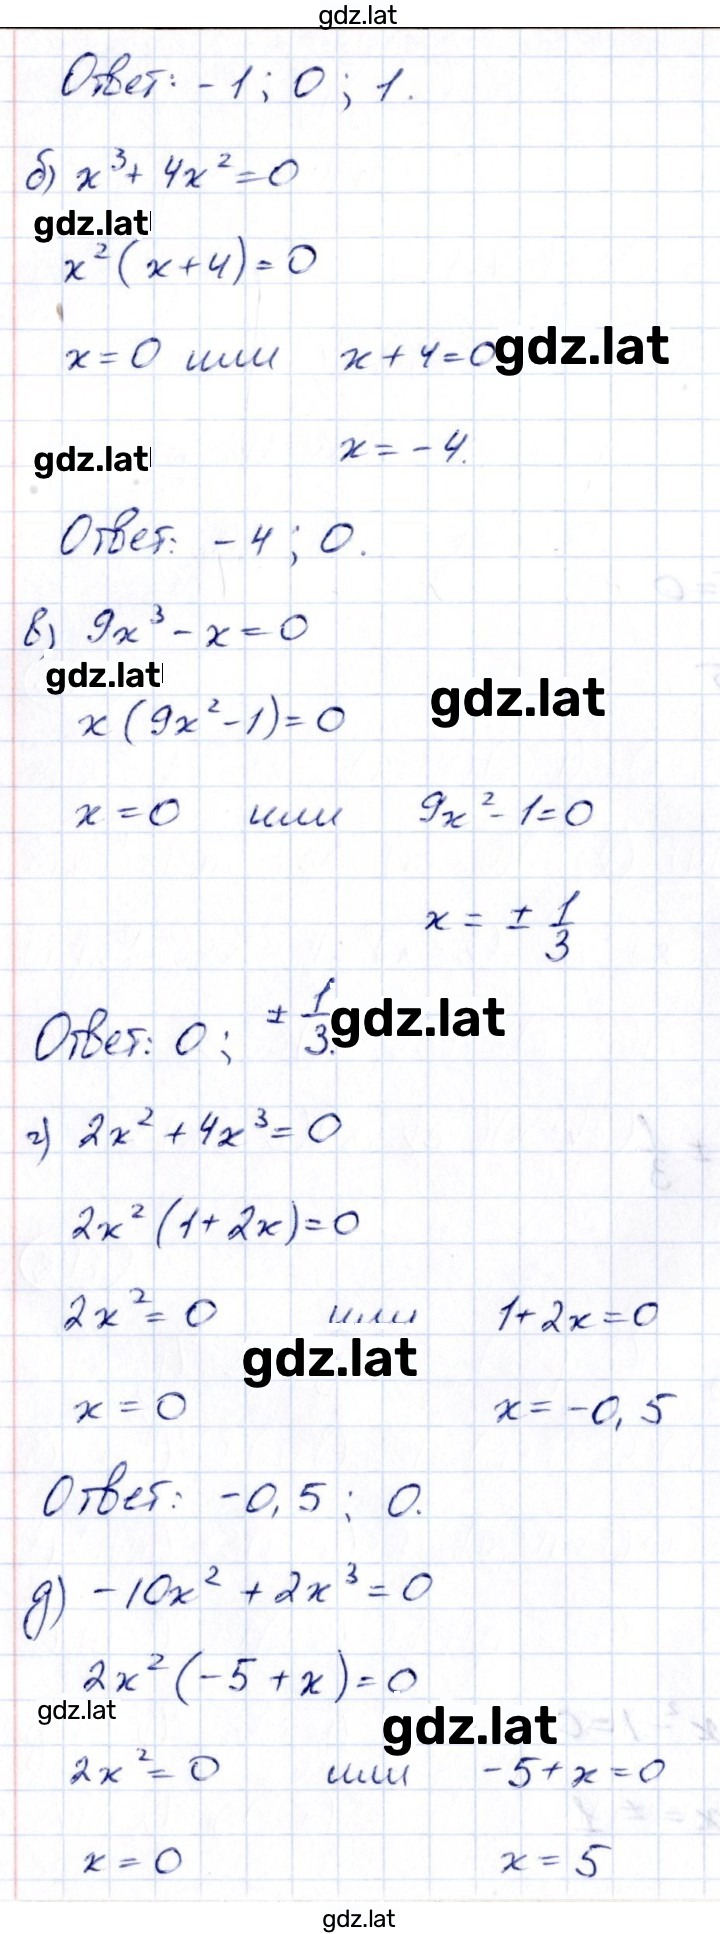 gdz.lat
Ответ: -1; 0; 1.
б) x³ + 4x² = 0
gdz.lat
x² (x+4) = 0
x = 0 или x + 4 = 0 gdz.lat
gdz.lat x = -4.
Ответ: -4; 0.
в) 9x³ - x = 0
gdz.lat gdz.lat
x (9x² - 1) = 0
x = 0 или 9x² - 1 = 0
x = ± 1/3
Ответ: 0; ± 1/3. gdz.lat
г) 2x² + 4x³ = 0
2x² (1 + 2x) = 0
2x² = 0 или 1 + 2x = 0
gdz.lat
x = 0 x = -0,5
Ответ: -0,5; 0.
д) -10x² + 2x³ = 0
2x² (-5 + x) = 0
gdz.lat gdz.lat
2x² = 0 или -5 + x = 0
x = 0 x = 5
gdz.lat